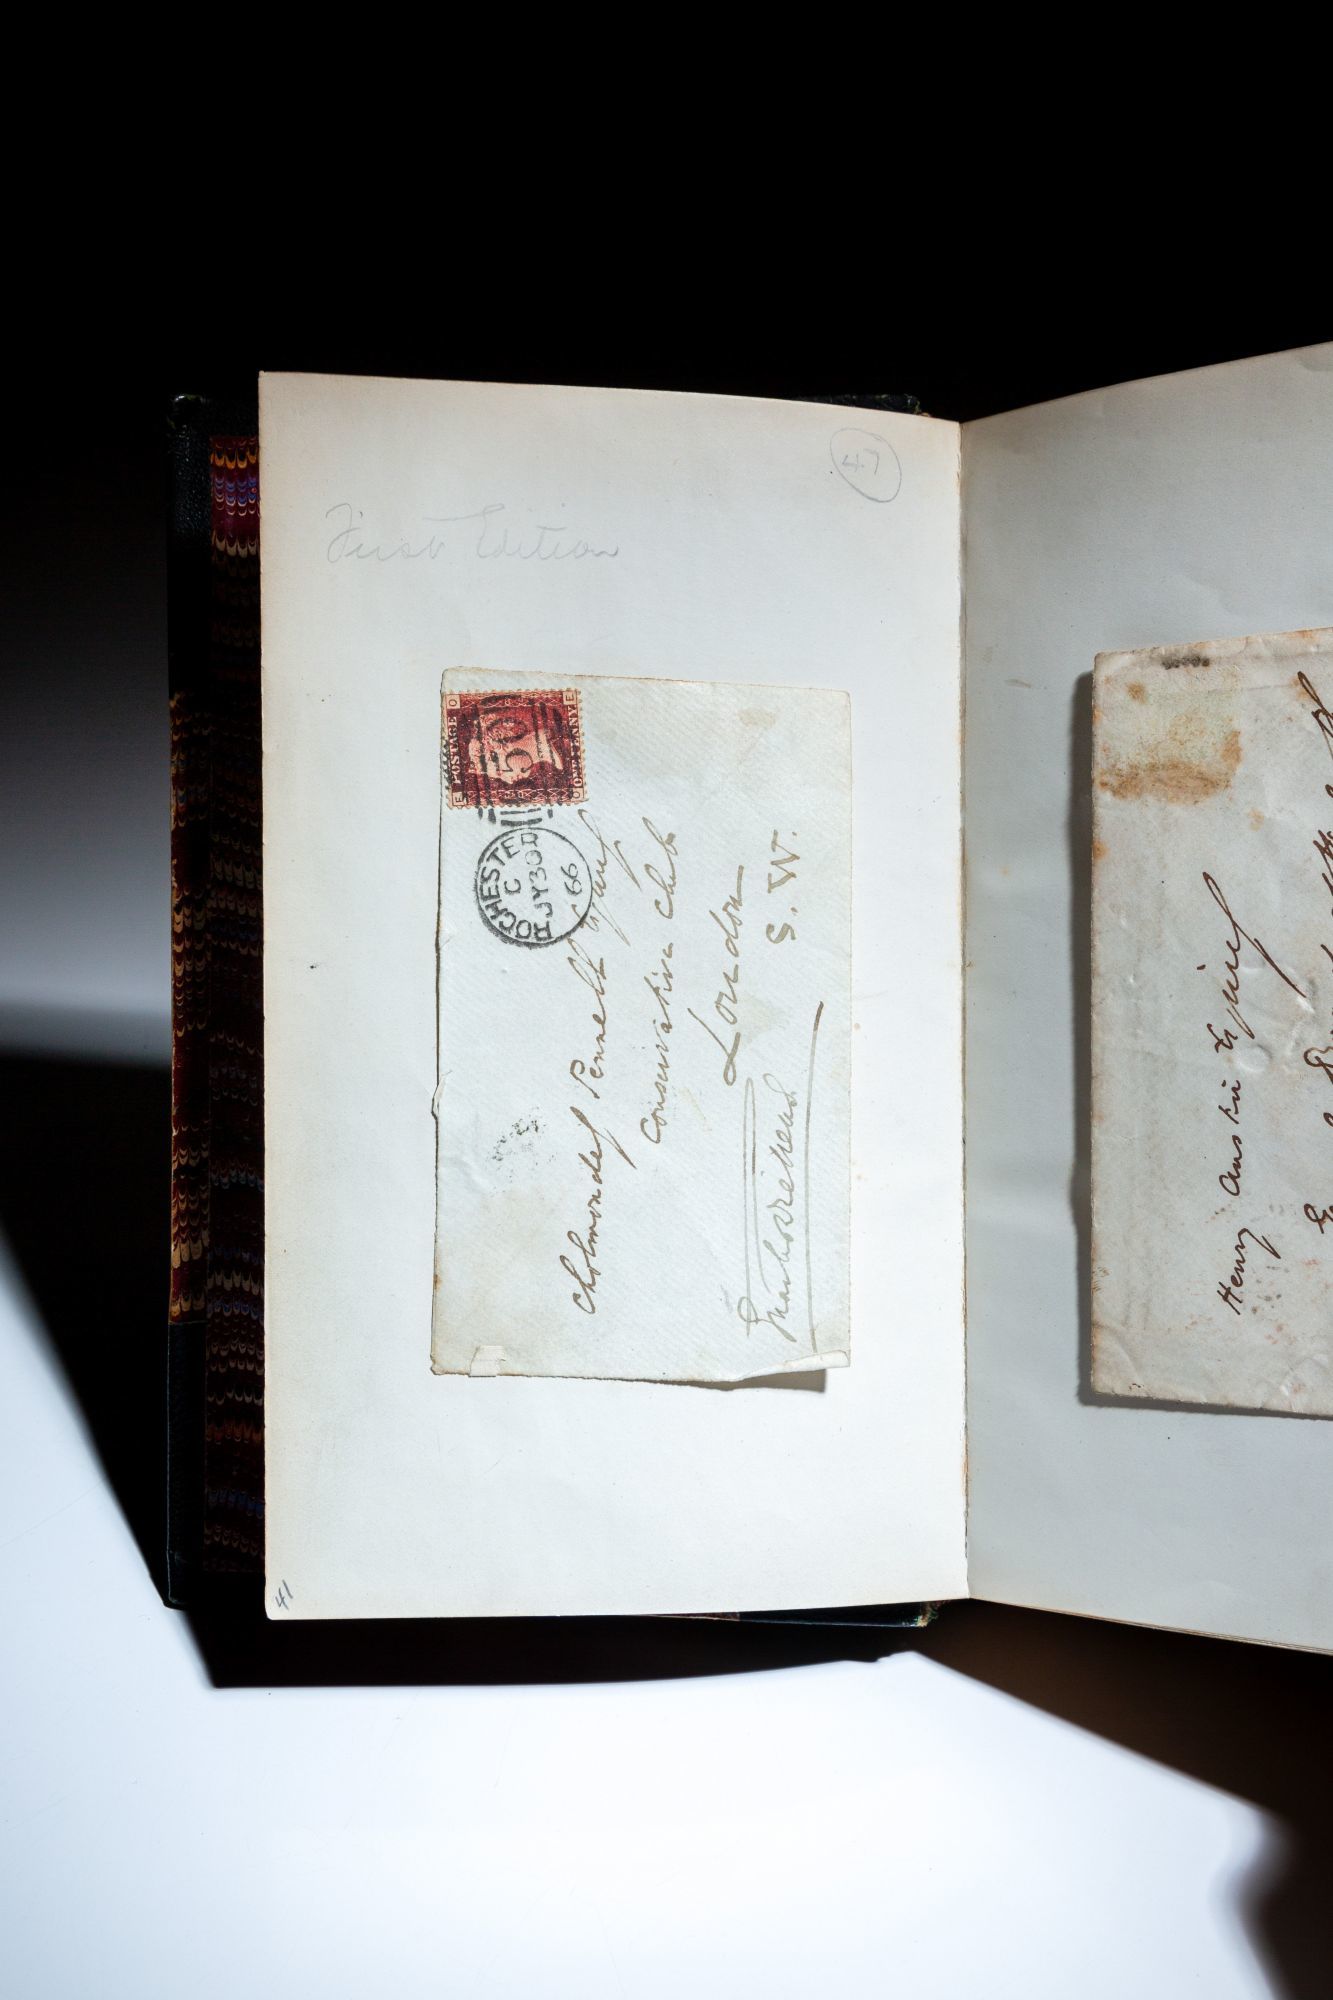 First Edition
47
POSTAGE
ONE PENNY
O E
E O
ROCHESTER
C
JY 30
66
Cholmondely Pennell Esquire
Conservative Club
London
S.W.
41
Henry Austin Esquire